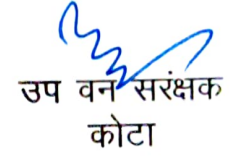 उप वन सरंक्षक
कोटा